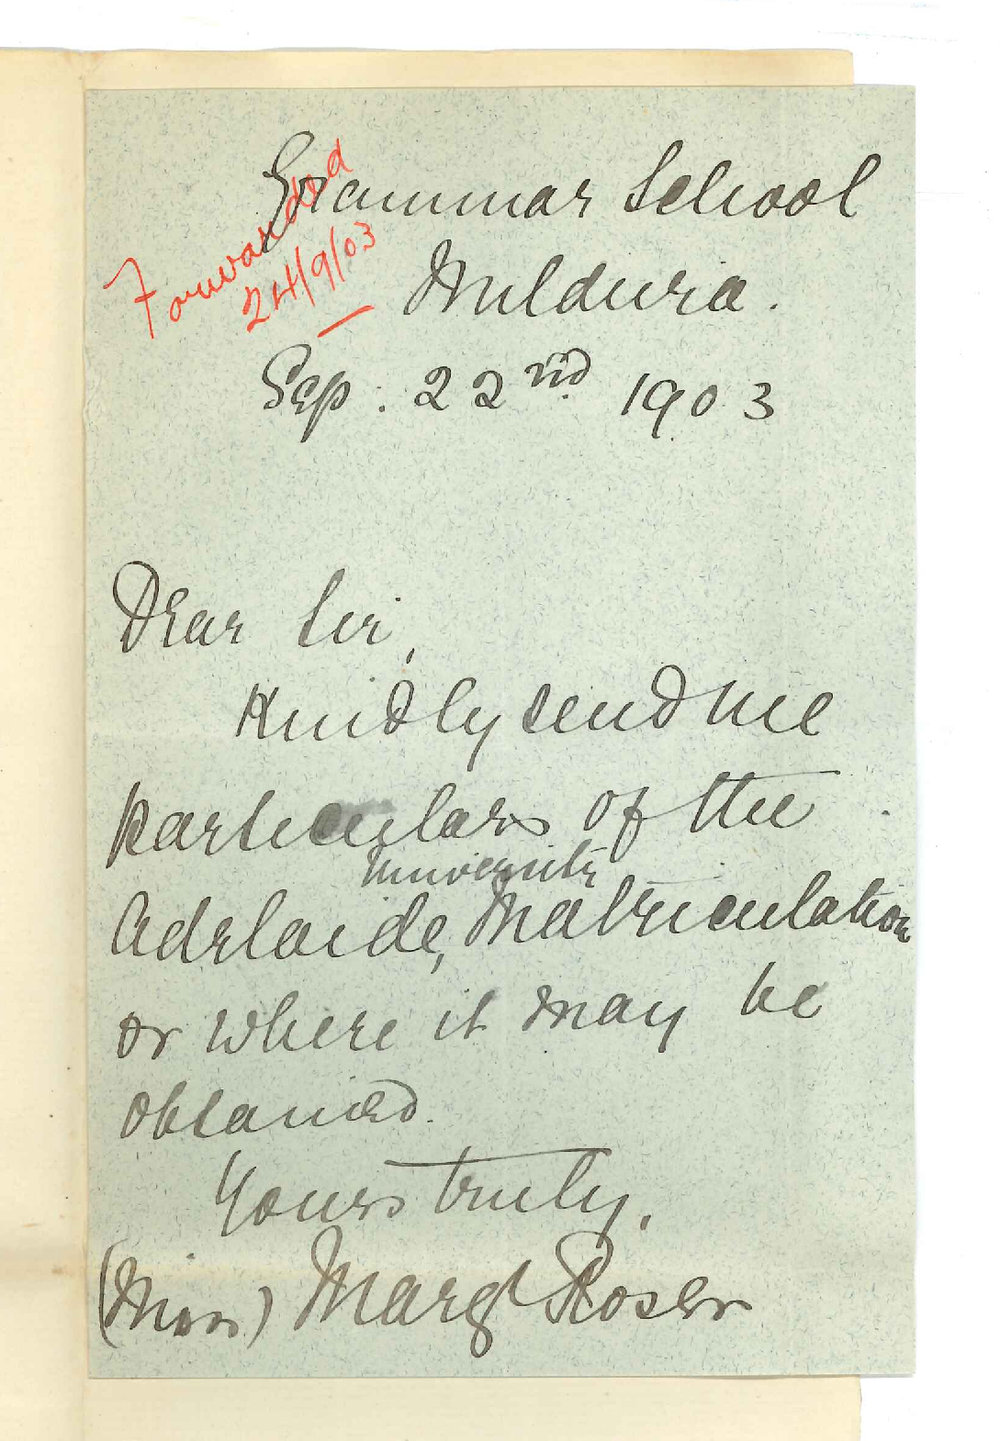 Grammar School
Forwarded
24/9/03
Mildura.
Sep: 22nd 1903
Dear Sir,
Kindly send me
particulars of the
University
Adelaide, Matriculation
or where it may be
obtained.
Yours truly,
(Miss) Margt